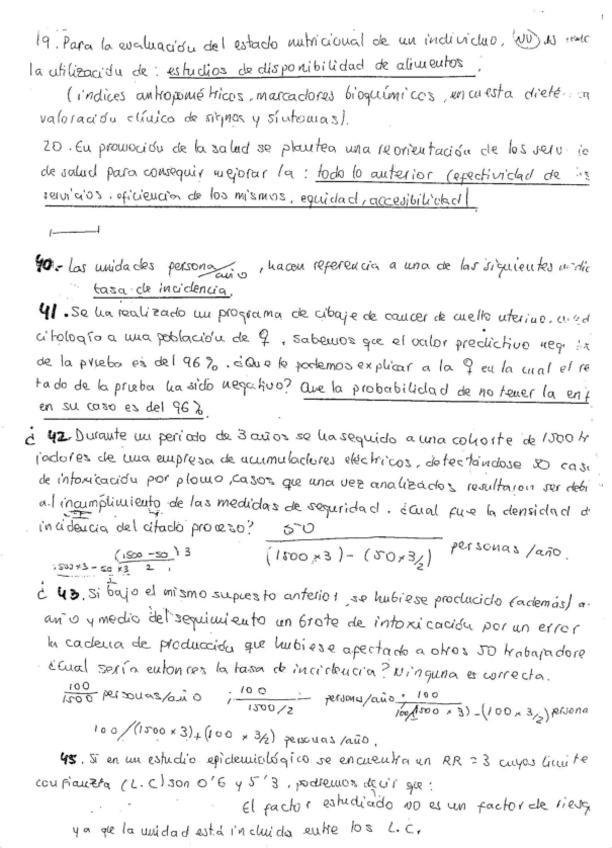 19. Para la evaluación del estado nutricional de un individuo, NO es
la utilización de: estudios de disponibilidad de alimentos.
(índices antropométricos, marcadores bioquímicos, encuesta dieté
valoración clínica de signos y síntomas).
20. En promoción de la salud se plantea una reorientación de los serv
de salud para conseguir mejorar la: todo lo anterior (efectividad de
servicios, eficiencia de los mismos, equidad, accesibilidad)
40.- Las unidades persona/año, hacen referencia a una de las siguientes
tasa de incidencia.
41. Se ha realizado un programa de cibaje de cancer de cuello uterino,
citología a una población de ♀, sabemos que el valor predictivo neg
de la prueba es del 96%. ¿Que le podemos explicar a la ♀ en la cual el re
tado de la prueba ha sido negativo? Que la probabilidad de no tener la enf
en su caso es del 96%.
¿ 42. Durante un periodo de 3 años se ha seguido a una cohorte de 1500 tr
jadores de una empresa de acumuladores eléctricos, detectándose 50 cas
de intoxicación por plomo, casos que una vez analizados resultaron ser debi
al incumplimiento de las medidas de seguridad. ¿Cual fue la densidad d
incidencia del citado proceso? 50
(1500-50) 3 / 2 (1500 x 3) - (50 x 3/2) personas/año.
1500 x 3 - 50 x 3 / 2
¿ 43. Si bajo el mismo supuesto anterior, se hubiese producido (además) a
año y medio del seguimiento un brote de intoxicación por un error
la cadena de producción que hubiese afectado a otros 50 trabajadore
¿Cual sería entonces la tasa de incidencia? Ninguna es correcta.
100/1500 personas/año ; 100 / 1500/2 personas/año. 100 / (1500 x 3) - (100 x 3/2) persona
100/(1500 x 3) + (100 x 3/2) personas/año.
45. Si en un estudio epidemiológico se encuentra un RR = 3 cuyos limite
confianza (L.C) son 0'6 y 5'3, podremos decir que:
El factor estudiado no es un factor de riesg
ya que la unidad está incluida entre los L.C.